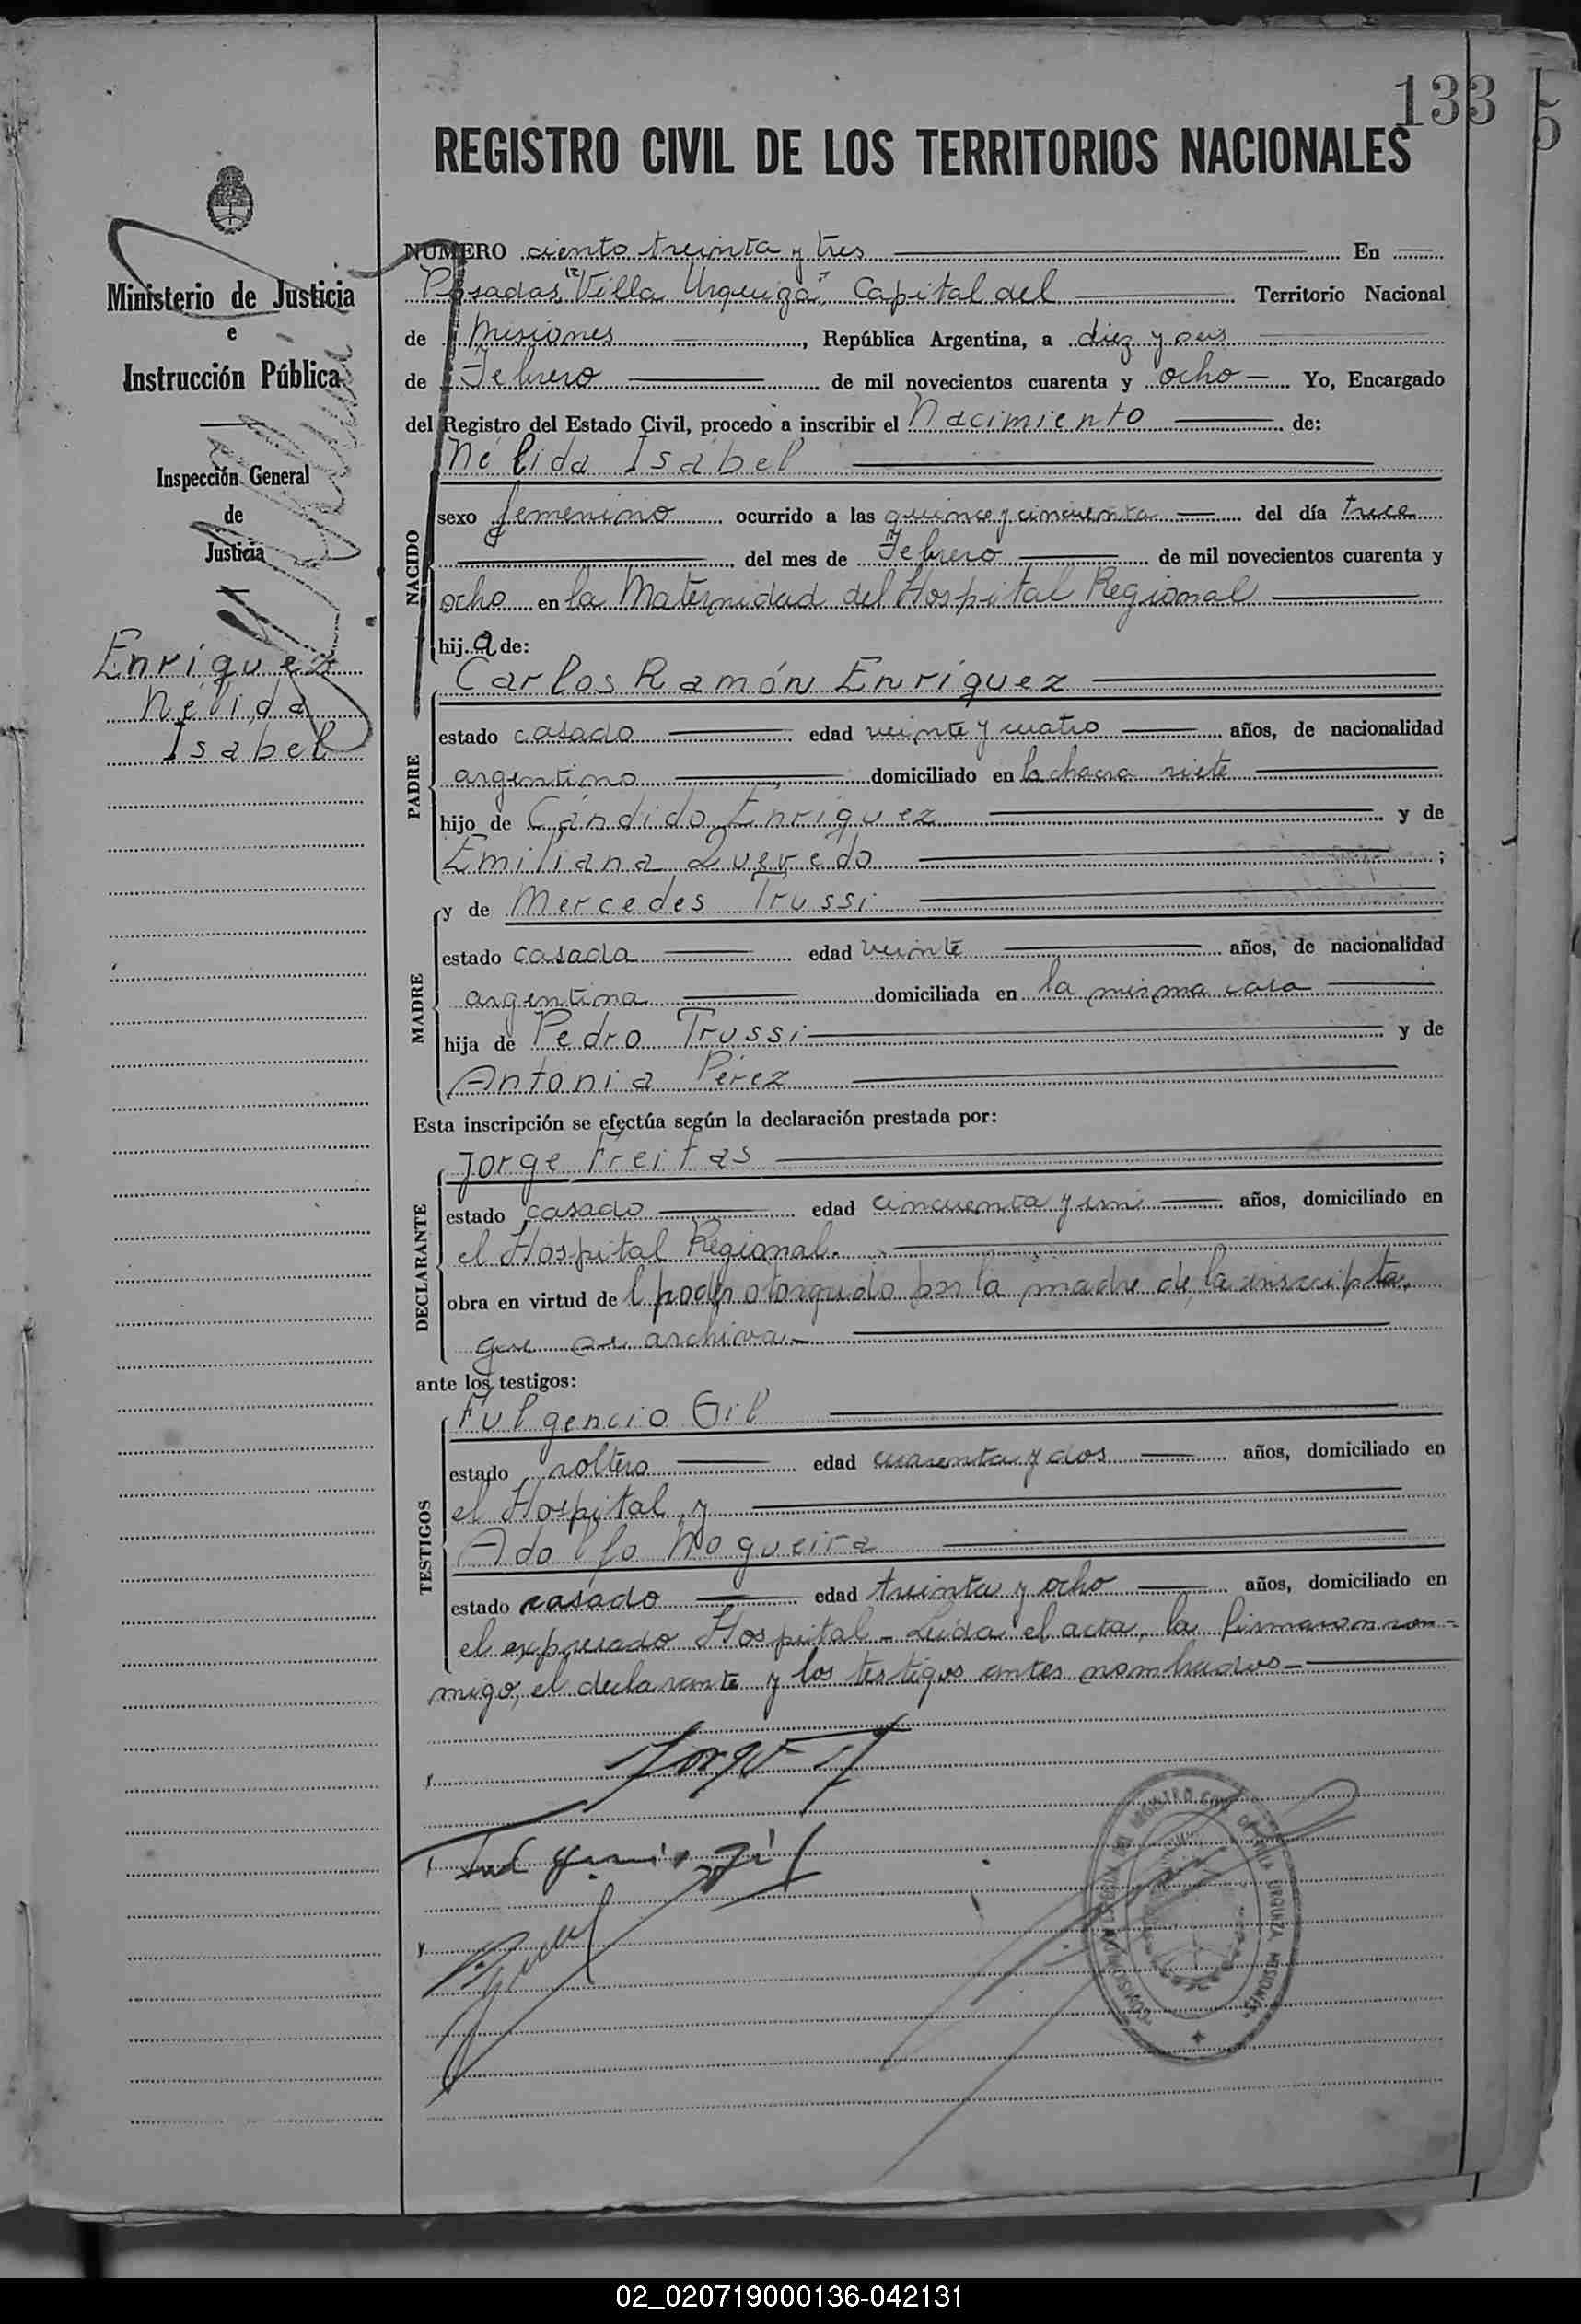 133
5
REGISTRO CIVIL DE LOS TERRITORIOS NACIONALES
NUMERO ciento treinta y tres En
Posadas "Villa Urquiza", Capital del Territorio Nacional
de Misiones, República Argentina, a diez y seis
de Febrero de mil novecientos cuarenta y ocho Yo, Encargado
del Registro del Estado Civil, procedo a inscribir el Nacimiento de:
Nélida Isabel
NACIDO
sexo femenino ocurrido a las quince y cincuenta del día trece
del mes de Febrero de mil novecientos cuarenta y
ocho en la Maternidad del Hospital Regional
hija de:
Carlos Ramón Enríquez
PADRE
estado casado edad veinte y cuatro años, de nacionalidad
argentino domiciliado en la chacra siete
hijo de Cándido Enríquez y de
Emiliana Quevedo ;
y de Mercedes Trussi
MADRE
estado casada edad veinte años, de nacionalidad
argentina domiciliada en la misma casa
hija de Pedro Trussi y de
Antonia Pérez
Esta inscripción se efectúa según la declaración prestada por:
Jorge Freitas
DECLARANTE
estado casado edad cincuenta y un años, domiciliado en
el Hospital Regional.
obra en virtud del poder otorgado por la madre de la inscripta,
que se archiva.-
ante los testigos:
Fulgencio Gil
TESTIGOS
estado soltero edad cuarenta y dos años, domiciliado en
el Hospital y
Adolfo Nogueira
estado casado edad treinta y ocho años, domiciliado en
el expresado Hospital - Leída el acta, la firmaron con-
migo, el declarante y los testigos antes nombrados -
Jorge
Fulgencio Gil
URQUIZA MISIONES
Ministerio de Justicia
e
Instrucción Pública
Inspección General
de
Justicia
Enríquez
Nélida
Isabel
02_020719000136-042131